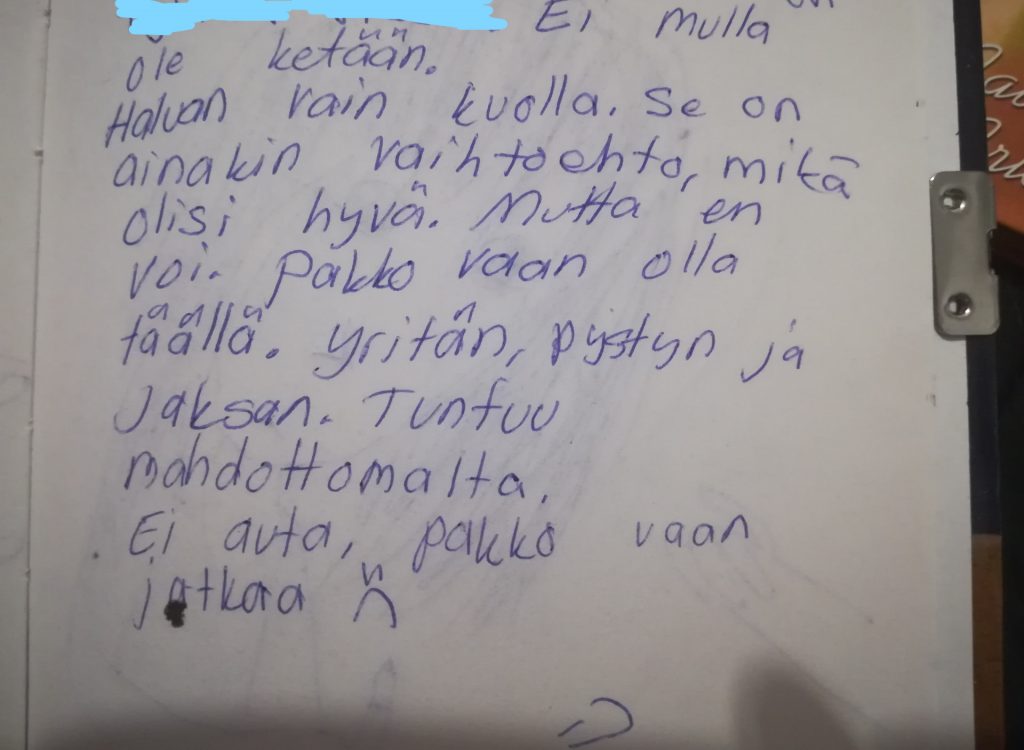 Ei mulla
ole ketään.
Haluan vain kuolla. Se on
ainakin vaihtoehto, mikä
olisi hyvä. Mutta en
voi. Pakko vaan olla
täällä. Yritän, pystyn ja
Jaksan. Tuntuu
mahdottomalta.
Ei auta, pakko vaan
jatkaa